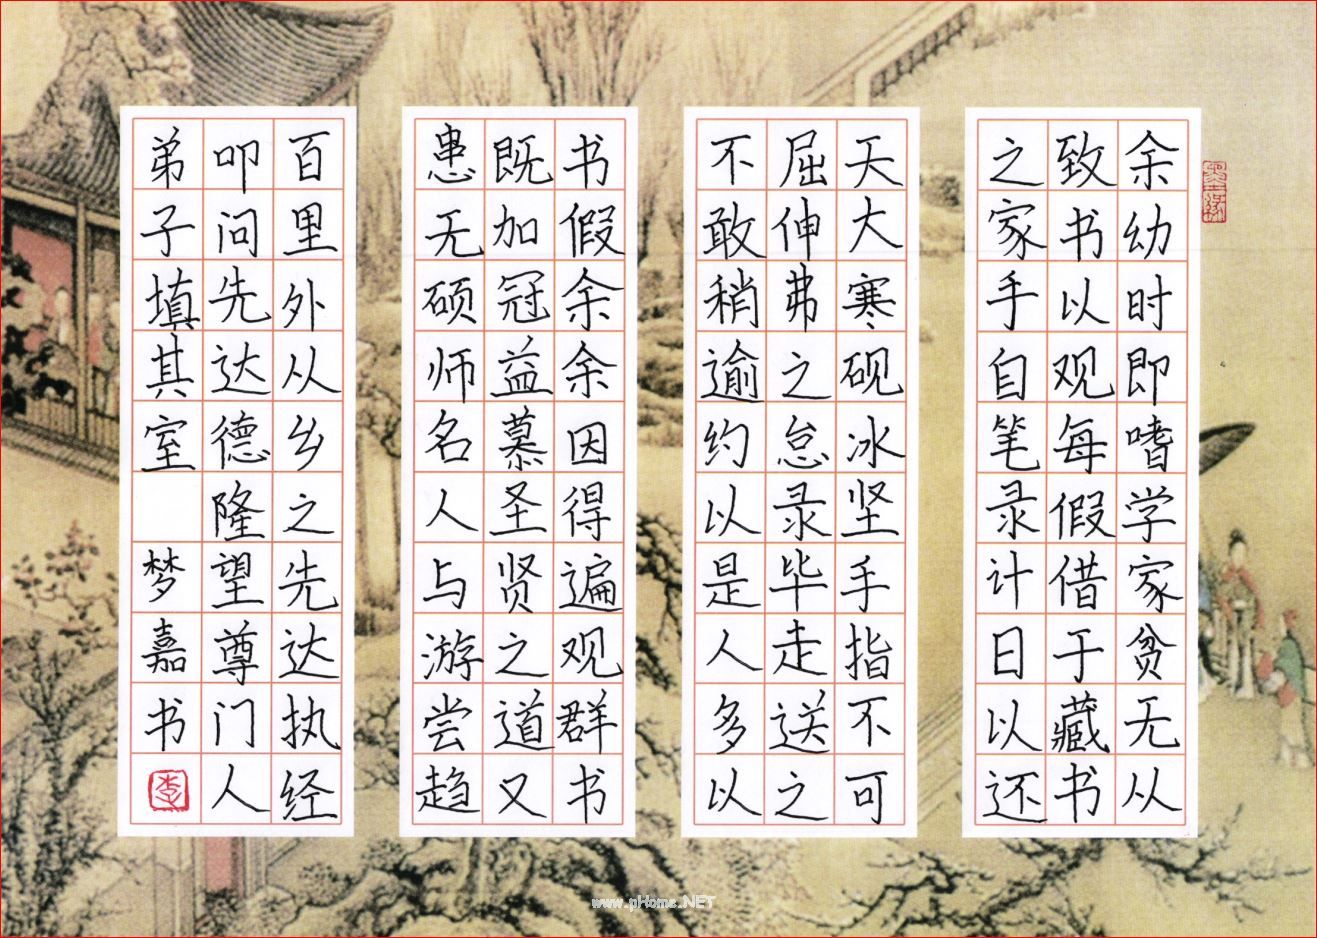 余幼时即嗜学家贫无从
致书以观每假借于藏书
之家手自笔录计日以还
天大寒砚冰坚手指不可
屈伸弗之怠录毕走送之
不敢稍逾约以是人多以
书假余余因得遍观群书
既加冠益慕圣贤之道又
患无硕师名人与游尝趋
百里外从乡之先达执经
叩问先达德隆望尊门人
弟子填其室
梦嘉书
李
www.pHome.NET